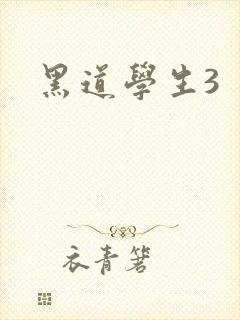 黑道學生3
衣青箬